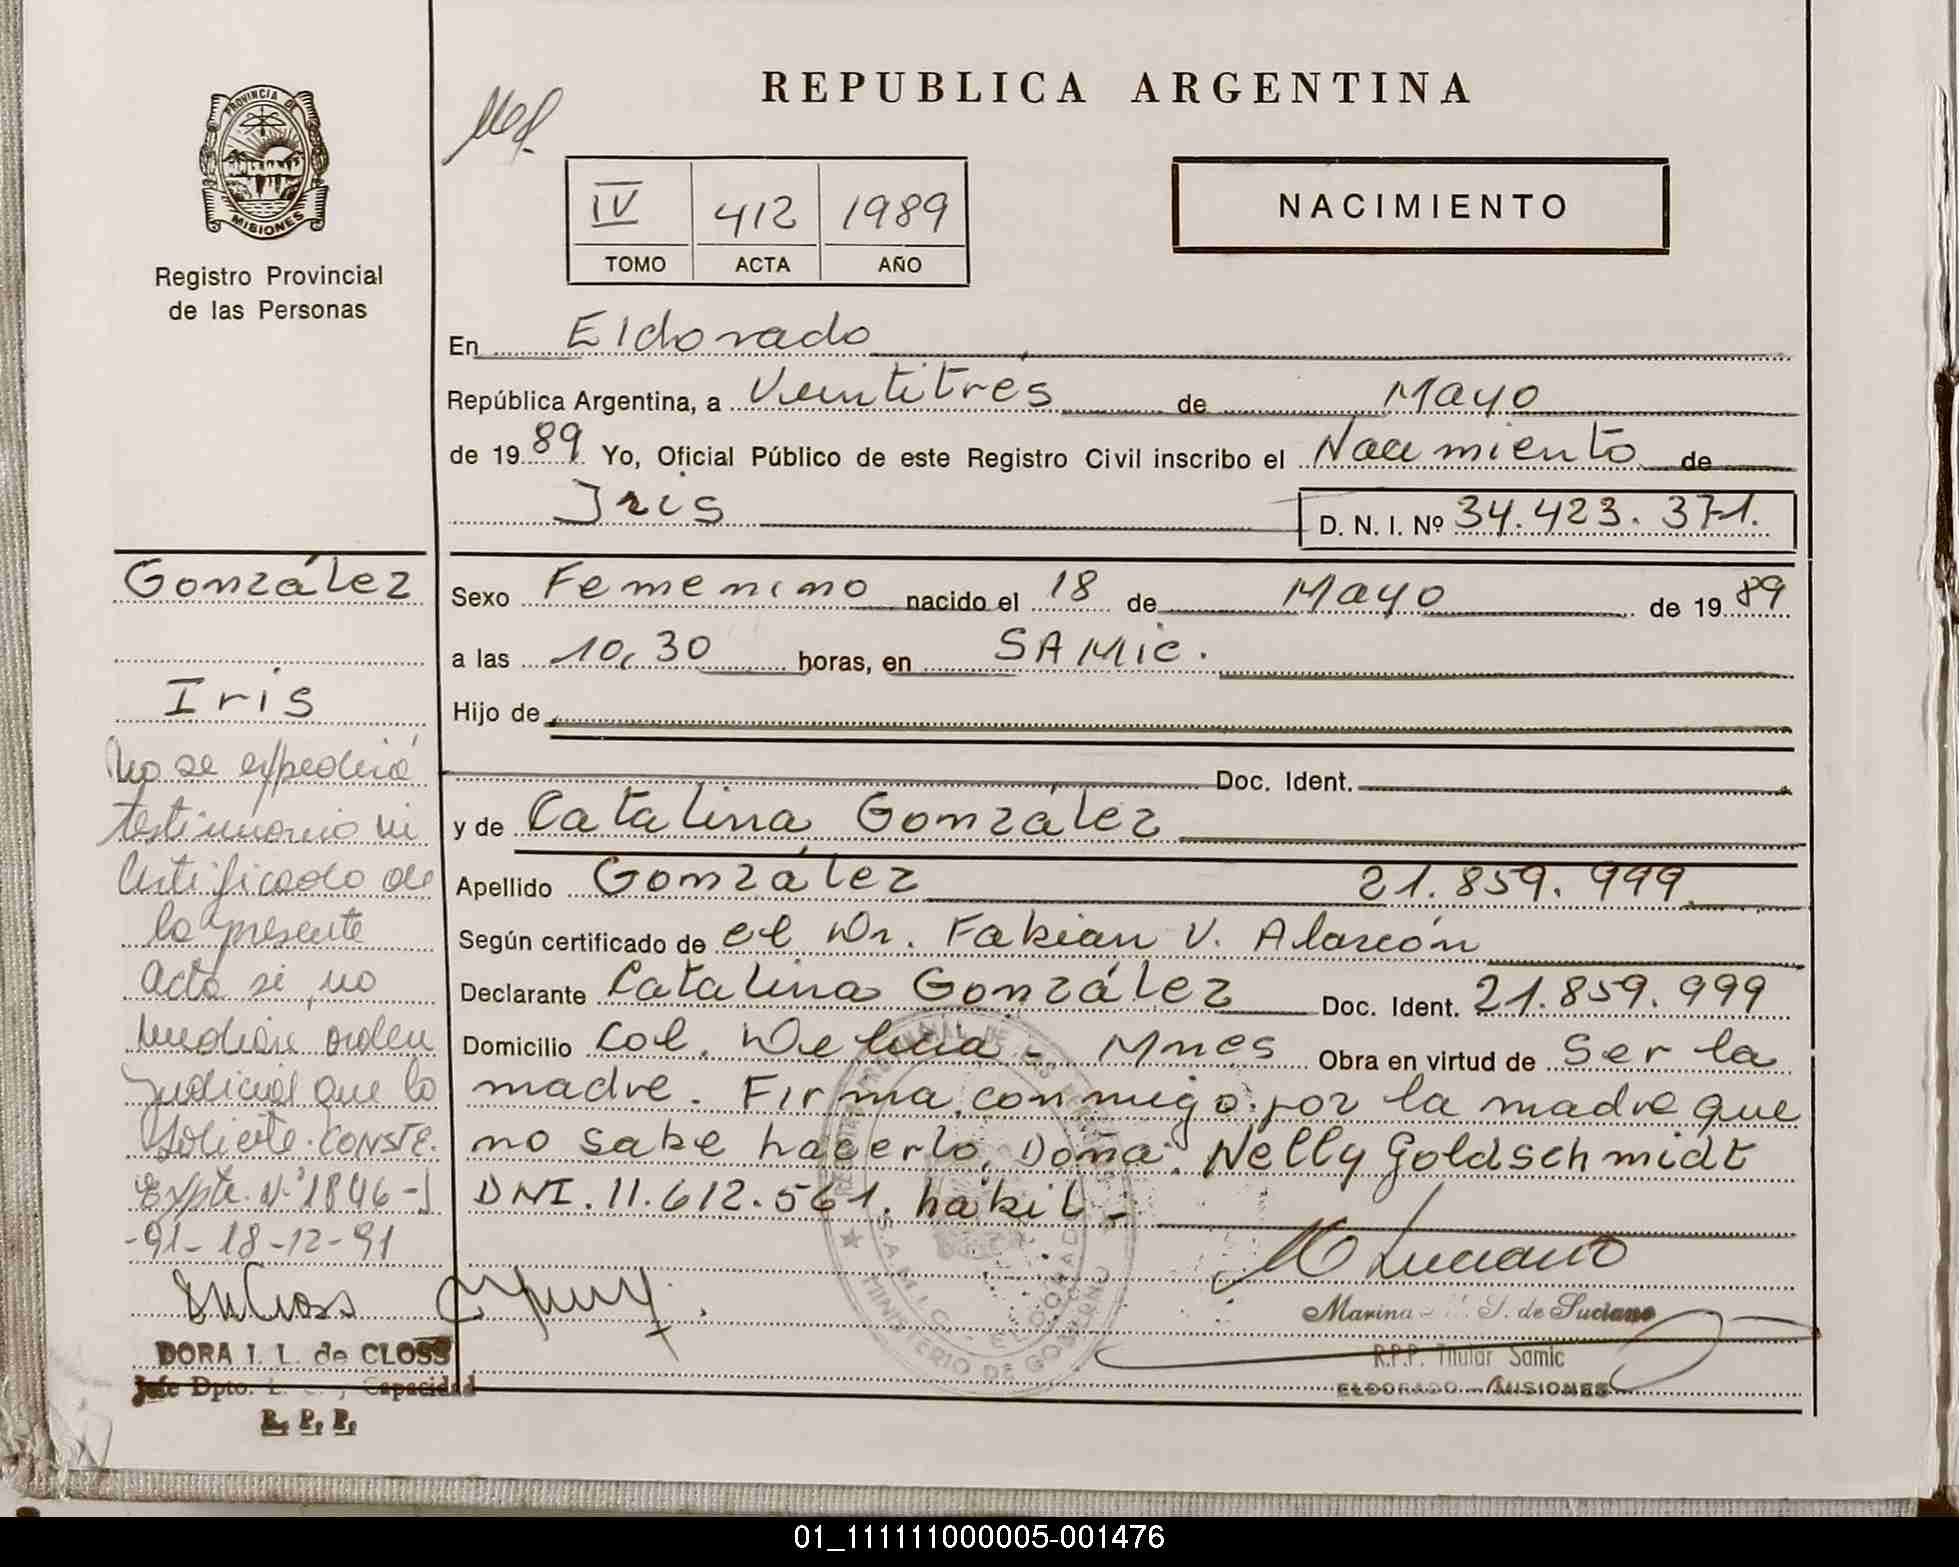 REPUBLICA ARGENTINA
PROVINCIA DE
MISIONES
Registro Provincial
de las Personas
IV 412 1989
TOMO ACTA AÑO
NACIMIENTO
En Eldorado
República Argentina, a Veintitrés de Mayo
de 1989 Yo, Oficial Público de este Registro Civil inscribo el Nacimiento de
Iris D. N. I. Nº 34.423.371.
González
Iris
No se expedirá
testimonio ni
Certificado de
la presente
acta si no
median orden
Judicial que lo
Solicite. CONSTE.
Expte. Nº 1846-J
-91- 18-12-91
DORA I. L. de CLOSS
Jefe Dpto. Capacidad
R. P. P.
Sexo Femenino nacido el 18 de Mayo de 1989
a las 10,30 horas, en SAMic.
Hijo de
Doc. Ident.
y de Catalina González
Apellido González 21.859.999
Según certificado de el Dr. Fabian V. Alarcón
Declarante Catalina González Doc. Ident. 21.859.999
Domicilio Col. Delicia - Mnes Obra en virtud de Ser la
madre. Firma conmigo por la madre que
no sabe hacerlo, Doña: Nelly Goldschmidt
DNI. 11.612.561. habil -
S.A.M.I.C. - ELDORADO
MINISTERIO DE GOBIERNO
Luciano
Marina S. de Luciano
R.P.P. Titular Samic
ELDORADO - MISIONES
01_111111000005-001476